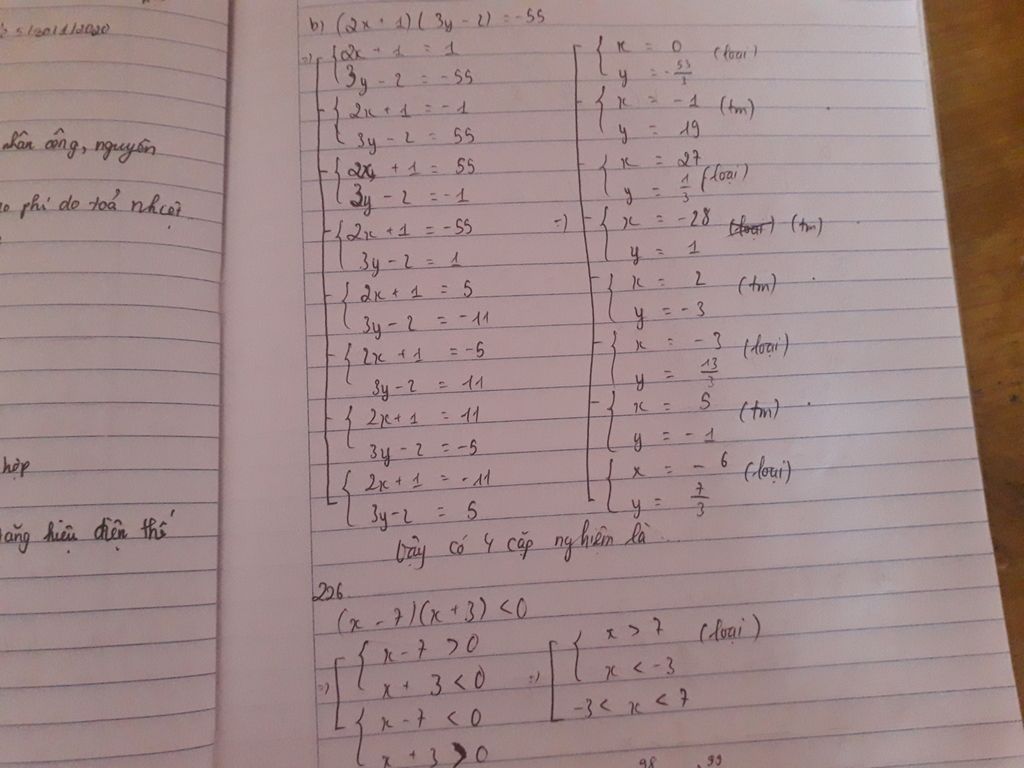 5/20/1/2020
nhân công, nguyên
phí do toả nhiệt
hợp
hiệu điện thế
b) (2x + 1)(3y - 2) = -55
=> { 2x + 1 = 1
3y - 2 = -55
{ 2x + 1 = -1
3y - 2 = 55
{ 2x + 1 = 55
3y - 2 = -1
{ 2x + 1 = -55
3y - 2 = 1
{ 2x + 1 = 5
3y - 2 = -11
{ 2x + 1 = -5
3y - 2 = 11
{ 2x + 1 = 11
3y - 2 = -5
{ 2x + 1 = -11
3y - 2 = 5
=> { x = 0 (loại)
y = -53/3
{ x = -1 (tm)
y = 19
{ x = 27
y = 1/3 (loại)
{ x = -28 (loại) (tm)
y = 1
{ x = 2 (tm)
y = -3
{ x = -3 (loại)
y = 13/3
{ x = 5 (tm)
y = -1
{ x = -6 (loại)
y = 7/3
Vậy có 4 cặp nghiệm là
226
(x - 7)(x + 3) < 0
=> { x - 7 > 0
x + 3 < 0
{ x - 7 < 0
x + 3 > 0
=> { x > 7 (loại)
x < -3
-3 < x < 7
98 99